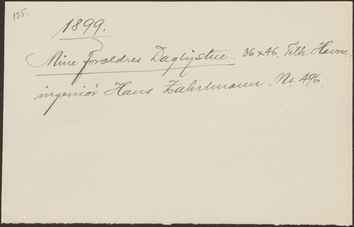 155.
1899.
Mine Forældres Dagligstue. 36x46. Tilh. Havne-
ingeniør Hans Zahrtmann. No 496.